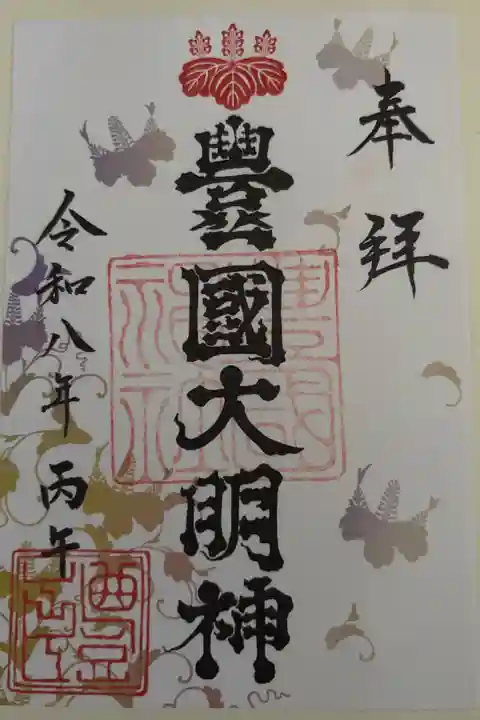 奉拝
豊國大明神
令和八年 丙午